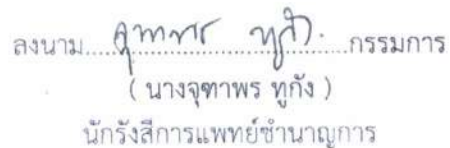 ลงนาม....จุฑาพร ทูกัง....กรรมการ
( นางจุฑาพร ทูกัง )
นักรังสีการแพทย์ชำนาญการ